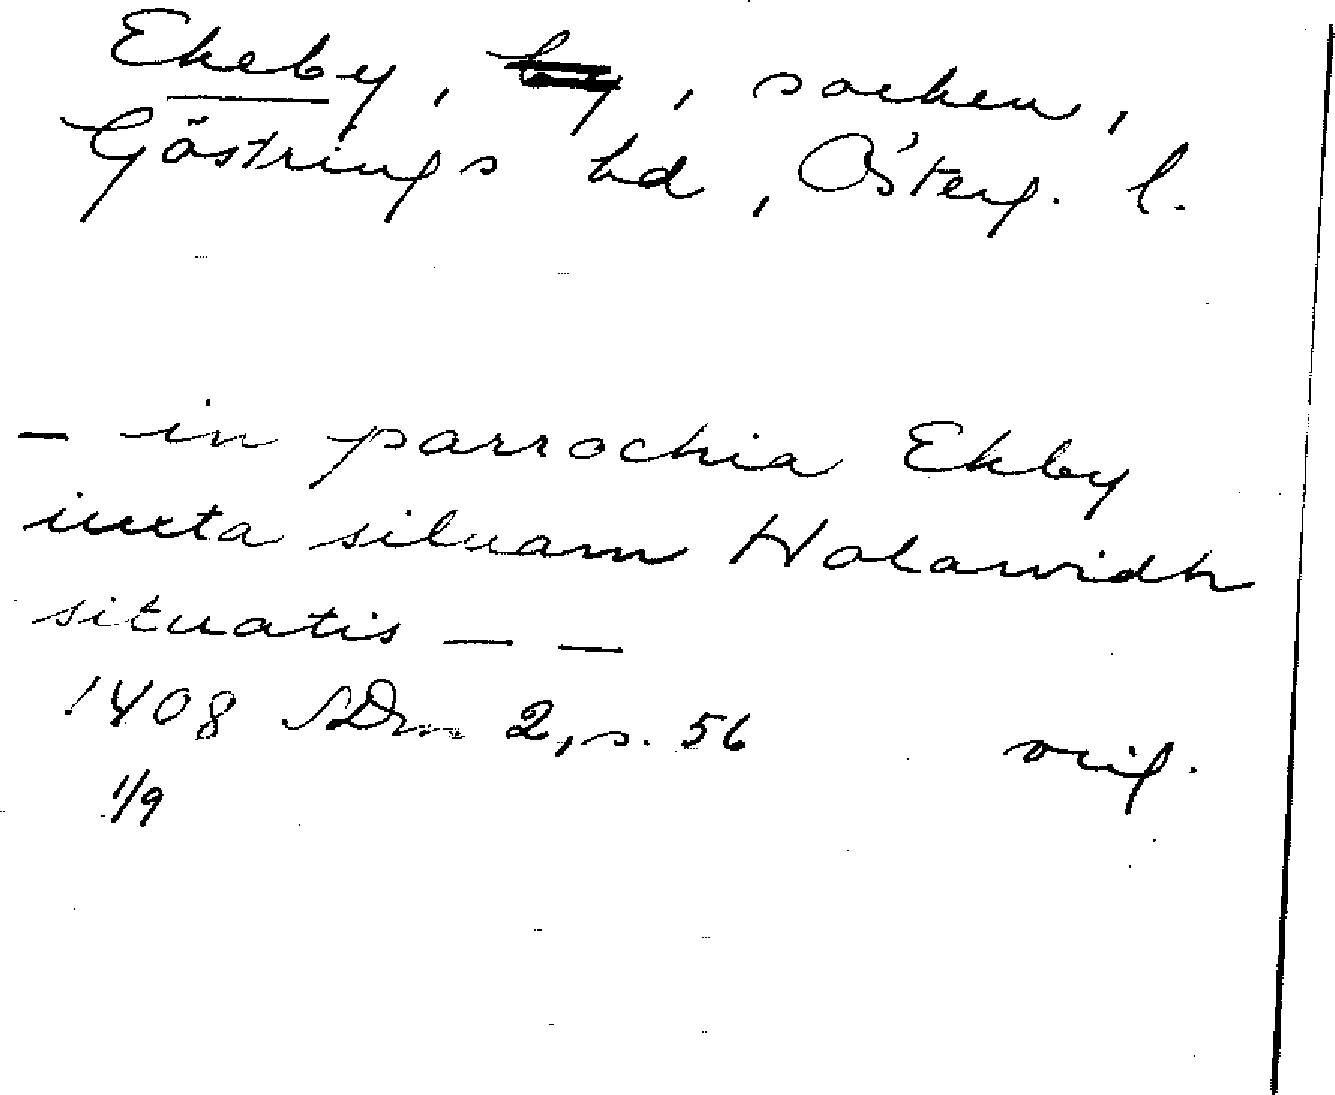 Ekeby, by, socken,
Göstrings hd, Österg. l.
– in parrochia Ekby
iuxta siluam Holawidh
situatis – –
1408 SDn 2, s. 56 orig.
1/9